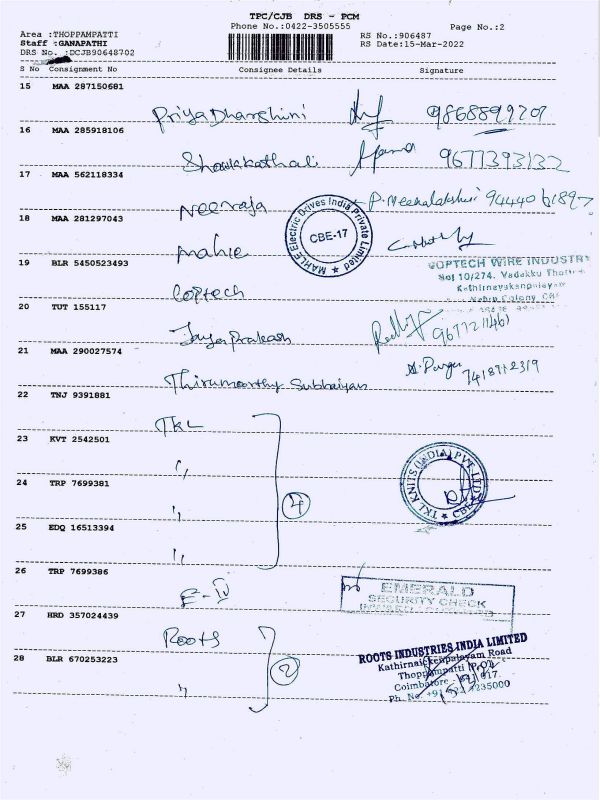 TPC/CJB DRS - PCM
Phone No.:0422-3505555
Page No.:2
Area :THOPPAMPATTI
Staff :GANAPATHI
DRS No. :DCJB90648702
RS No.:906487
RS Date:15-Mar-2022
S No Consignment No Consignee Details Signature
15 MAA 287150681
PriyaDharshini
16 MAA 285918106
9677393132
17 MAA 562118334
Neeraja
18 MAA 281297043
Mahle
MAHLE Electric Drives India Private Limited
CBE-17
19 BLR 5450523493
Coptech
COPTECH WIRE INDUSTRY
No: 10/274, Vadakku
Kathirnayakanpalayam
20 TUT 155117
JayaPrakash
21 MAA 290027574
Thirumoorthy Subbaiyan
22 TNJ 9391881
TKL
23 KVT 2542501
"
24 TRP 7699381
"
4
TKL KNITS (INDIA) PVT LTD
CBE
25 EDQ 16513394
"
26 TRP 7699386
E-IV
EMERALD
SECURITY CHECK
27 HRD 357024439
Roots
28 BLR 670253223
"
2
ROOTS INDUSTRIES INDIA LIMITED
Kathirnaickenpalayam Road
Thoppampatti (P.O)
Coimbatore - 641 017.
Ph. No. +91 422 4235000